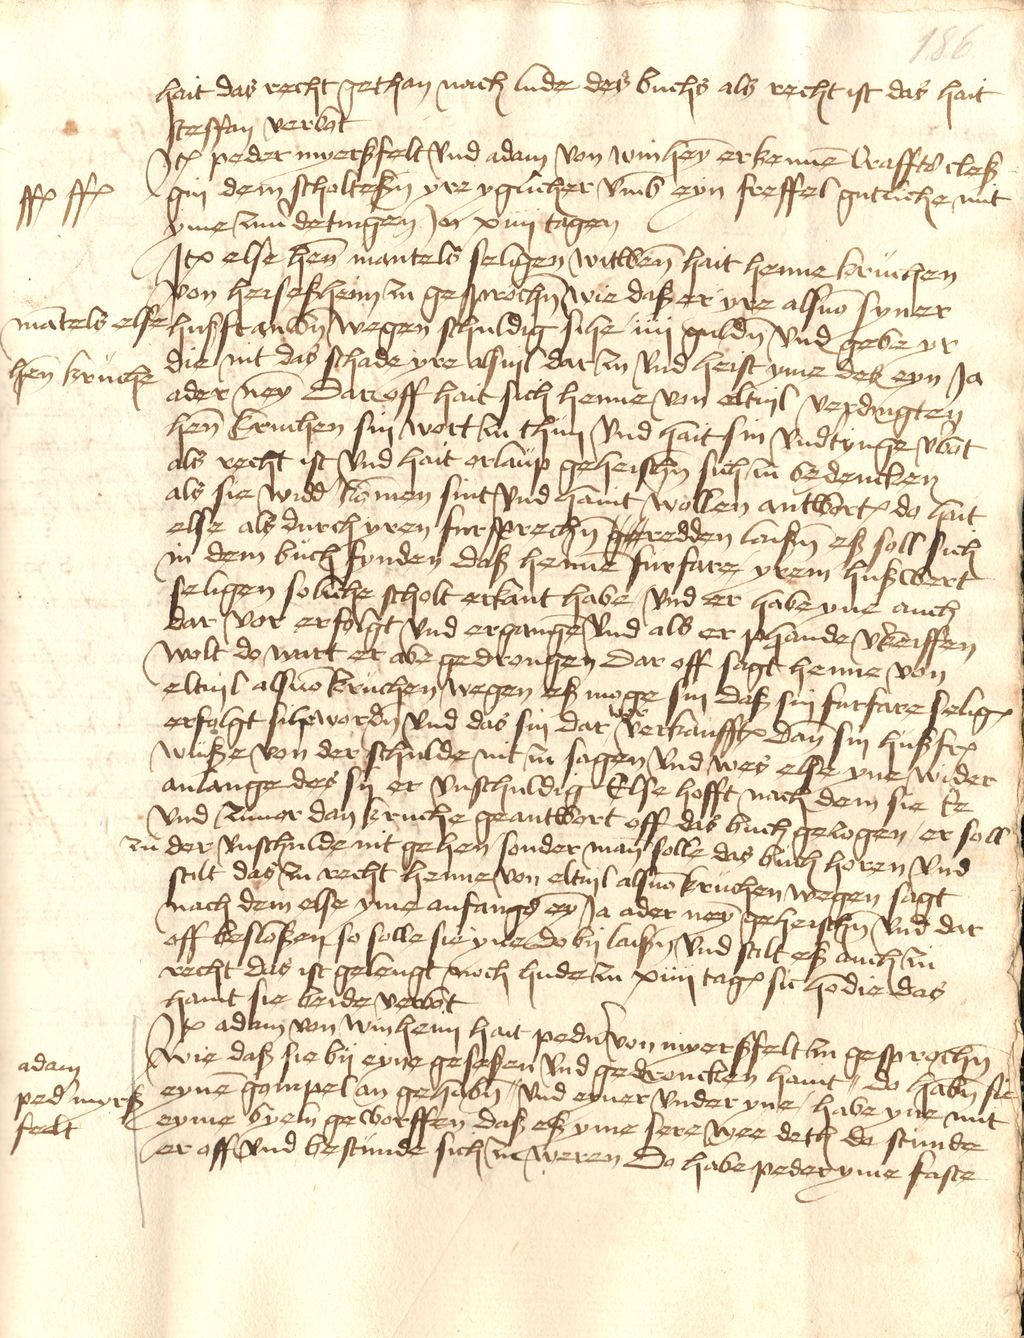 186
hait das recht gethan nach lude des buchs als recht ist das hait
steffan verbot
Jtem peder mverßfelt vnd adam von winheÿ erkennē Craffts cleß
ffͣ ffͣ
gin dem scholteßin yre yglicher vmb eyn freffel gutliche mit
yme zuu detingen Jn xiiij tagen
Jtem else hen̄ mantels seligen witwen̄ hait henne kruchen
von heisesheim zu gesprochin wie daß er yre als von syner
mātels else
hußfrauwen wegen schuldig sihe iiij guldn̄ vnd gebe yr
hen̄ kruche
die nit das schade yre alsuil dar zu vnd heist yme des eyn Ja
ader neÿ Dar off hait sich henne von eltuil verdingt
hen̄ kruchen sin wort zu thun vnd hait sin vndtinge vbot
als recht ist vnd hait orlaup geheischin sich zu bedencken
als sie widd komen sint vnd haint wollen antworten do hait
else als durch yren fursprechn̄ redden laißin eß soll sich
in dem buch fynden daß henne furfare yrem hußwert
seligen soliche scholt erkant habe vnd er habe yne auch
dar vor erfolgt vnd ergangē vnd als er phande
wolt do wurt er abe gedrongen Dar off sagt henne von
eltuil als von kruchen wegen eß moge sin daß sin furfare selig
erfolgt sihe wordn̄ vnd das sin dar verkaufft Dan̄ sin hußfr
wuße von der schulde nit zu sagen vnd wes else yne wider
anlange des sij er vnschuldig Else hofft nach dem sie ee
vnd zuuor dan kruche geantwort off das buch gezogen er soll
zu der vnschulde nit gehen sonder man solle das buch horen vnd
stilt das zu recht henne von eltuil als von kruchen wegen sagt
nach dem else yme anfangs eÿ Ja ader neÿ geheischn̄ vnd dar
off besloßen so solle sie yne do bij laißn̄ vnd stilt eß auch zu
recht das ist gelengt noch hude zu xiiij tag sic hodie das
haint sie beide verbot
Jtem adam von winheim hait pedir von mverßfelt zu gesprochn̄
adam
wie daß sie bij eyne geseßen vnd gedroncken haint do habn̄ sie
ped myrß
eynē gompel an gehabn̄ vnd eyner vnder yne habe yne mit
felt
eyme beyn̄ geworffen daß eß yme sere wee deth do stunde
er off vnd bestunde sich zu weren Do habe peder yme faste